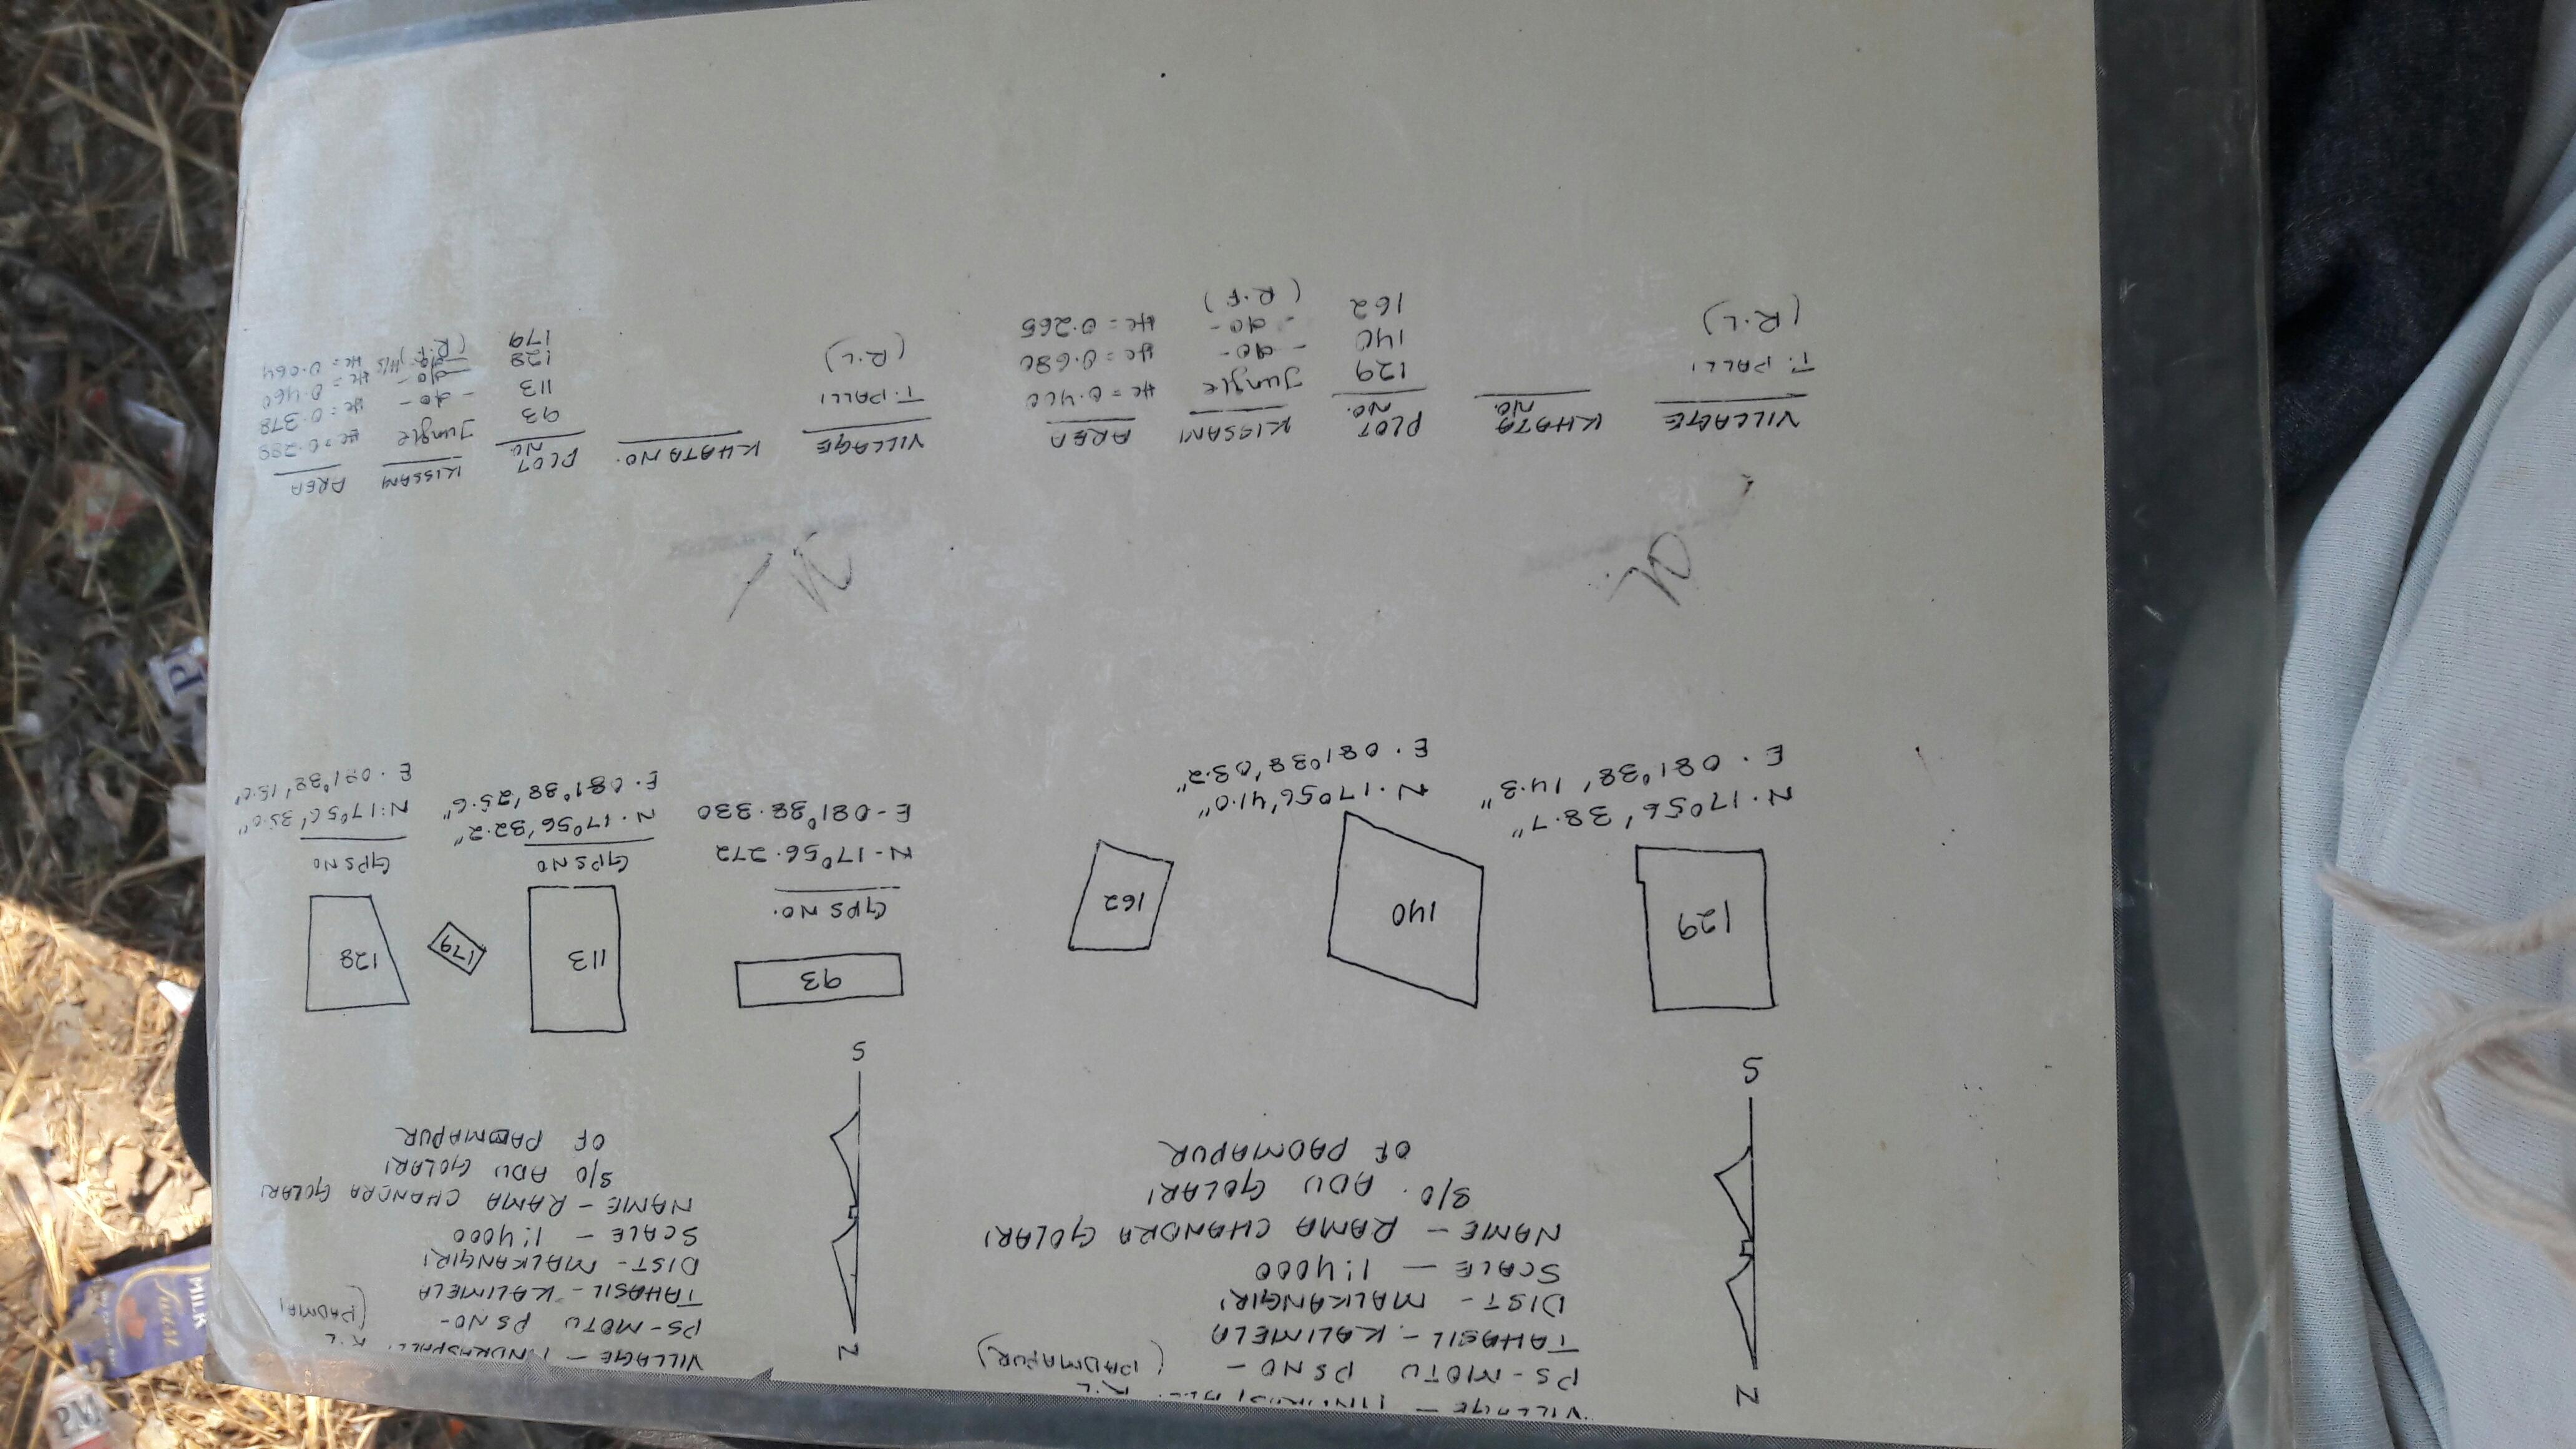 VILLAGE -
PS - MOTU PS NO - (PADMAPUR)
TAHASIL - KALIMELA
DIST - MALKANGIRI
SCALE - 1:4000
NAME - RAMA CHANDRA GOLARI
S/O. ADU GOLARI
OF PADMAPUR
N
S
129
140
162
N. 17°56' 38.7"
E. 081°38' 14.3"
N. 17°56' 41.0"
E. 081°38' 03.2"
VILLAGE KHATA NO. PLOT NO. KISSAM AREA
T. PALLI 129 Jungle Hc = 0.400
140 - do - Hc = 0.680
(R.L) 162 - do - Hc = 0.265
(R.F)
VILLAGE -
PS - MOTU PS NO -
TAHASIL - KALIMELA
DIST - MALKANGIRI
SCALE - 1:4000
NAME - RAMA CHANDRA GOLARI
S/O ADU GOLARI
OF PADMAPUR
N
S
93
113
179
128
GPS NO.
N - 17°56.272
E - 081°38.330
GPS NO
N. 17°56' 32.2"
E. 081°38' 25.6"
GPS NO
N: 17°56' 35.0"
E. 081°38'
VILLAGE KHATA NO. PLOT NO. KISSAM AREA
T. PALLI 93 Jungle
113 - do - Hc = 0.378
(R.L) 128 - do - Hc = 0.460
179 - do - H/S Hc = 0.064
(R.F)
MILK
PM